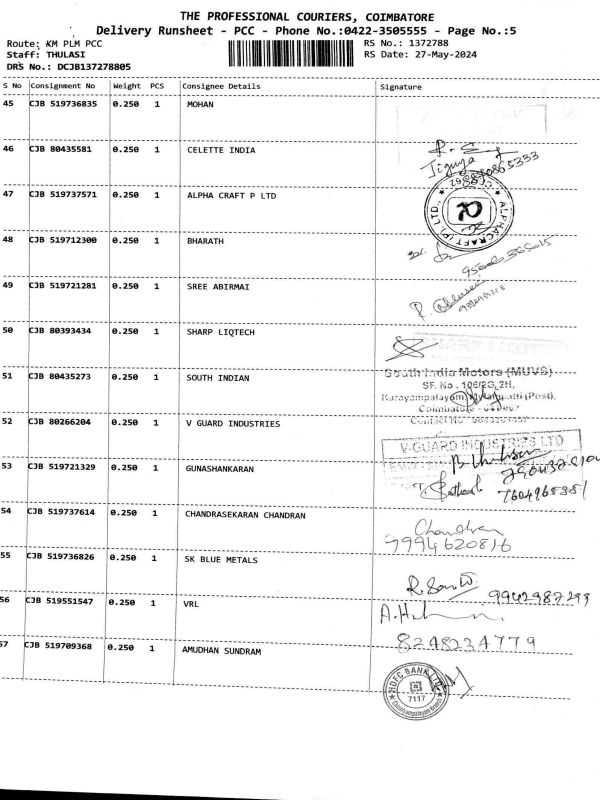 THE PROFESSIONAL COURIERS, COIMBATORE
Delivery Runsheet - PCC - Phone No.:0422-3505555 - Page No.:5
Route: KM PLM PCC
RS No.: 1372788
Staff: THULASI
RS Date: 27-May-2024
DRS No.: DCJB137278805
S No Consignment No Weight PCS Consignee Details Signature
45 CJB 519736835 0.250 1 MOHAN
46 CJB 80435581 0.250 1 CELETTE INDIA
47 CJB 519737571 0.250 1 ALPHA CRAFT P LTD
ALPHACRAFT (P) LTD.,
48 CJB 519712300 0.250 1 BHARATH
49 CJB 519721281 0.250 1 SREE ABIRMAI
50 CJB 80393434 0.250 1 SHARP LIQTECH
51 CJB 80435273 0.250 1 SOUTH INDIAN
South India Motors (MUVS)
SF. No. 106/2G, 2H,
52 CJB 80266204 0.250 1 V GUARD INDUSTRIES
V-GUARD INDUSTRIES LTD
53 CJB 519721329 0.250 1 GUNASHANKARAN
54 CJB 519737614 0.250 1 CHANDRASEKARAN CHANDRAN
Chandran
9994620816
55 CJB 519736826 0.250 1 SK BLUE METALS
9942987299
56 CJB 519551547 0.250 1 VRL
8248234779
57 CJB 519709368 0.250 1 AMUDHAN SUNDRAM
HDFC BANK LTD
7117